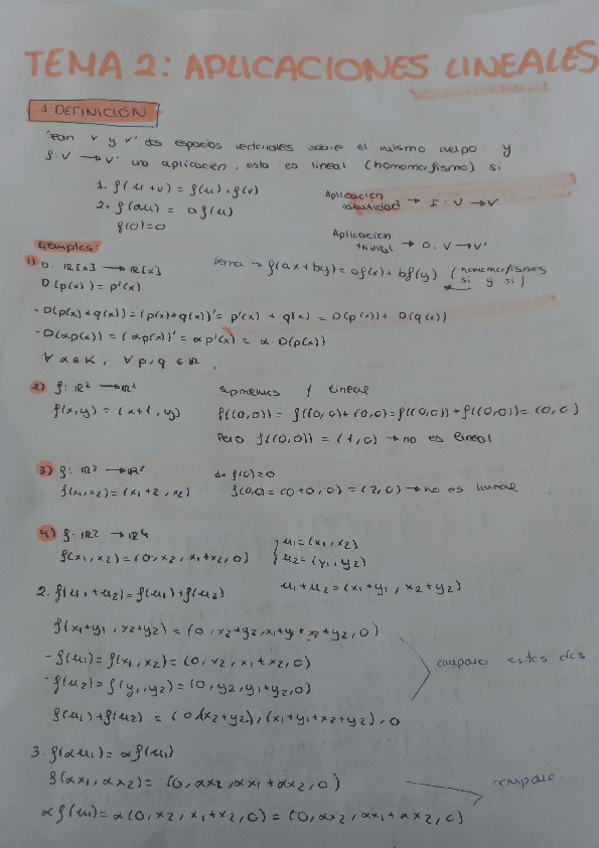 TEMA 2: APLICACIONES LINEALES
1 DEFINICIÓN
Sean V y V' dos espacios vectoriales sobre el mismo cuerpo y
f: V → V' una aplicación, esta es lineal (homomorfismo) si
1. f(u+v) = f(u)+f(v)
2. f(au) = af(u)
f(0)=0
Aplicación identidad → I: V → V
Aplicación trivial → O: V → V'
Ejemplos:
1) D: ℝ[x] → ℝ[x]
D(p(x)) = p'(x)
lema → f(ax+by) = af(x)+bf(y) (homomorfismos si y si)
- D(p(x)+q(x)) = (p(x)+q(x))' = p'(x) + q'(x) = D(p(x)) + D(q(x))
- D(αp(x)) = (αp(x))' = αp'(x) = α·D(p(x))
∀ α ∈ K, ∀ p, q ∈ ℝ.
2) f: ℝ² → ℝ²
f(x,y) = (x+1, y)
Suponemos f lineal
f((0,0)) = f((0,0)+(0,0)) = f((0,0)) + f((0,0)) = (0,0)
Pero f((0,0)) = (1,0) → no es lineal
3) f: ℝ² → ℝ²
f(x₁,x₂) = (x₁+2, x₂)
f(0)=0
f(0,0) = (0+0,0) = (2,0) → no es lineal
4) f: ℝ² → ℝ⁴
f(x₁,x₂) = (0, x₂, x₁+x₂, 0)
u₁=(x₁,x₂)
u₂=(y₁,y₂)
2. f(u₁+u₂) = f(u₁)+f(u₂)
u₁+u₂ = (x₁+y₁, x₂+y₂)
f(x₁+y₁, x₂+y₂) = (0, x₂+y₂, x₁+y₁+x₂+y₂, 0)
- f(u₁) = f(x₁,x₂) = (0, x₂, x₁+x₂, 0)
- f(u₂) = f(y₁,y₂) = (0, y₂, y₁+y₂, 0)
comparo estos dos
f(u₁)+f(u₂) = (0,(x₂+y₂),(x₁+y₁+x₂+y₂),0
3. f(αu₁) = αf(u₁)
f(αx₁, αx₂) = (0, αx₂, αx₁+αx₂, 0)
comparo.
αf(u₁) = α(0, x₂, x₁+x₂, 0) = (0, αx₂, αx₁+αx₂, 0)